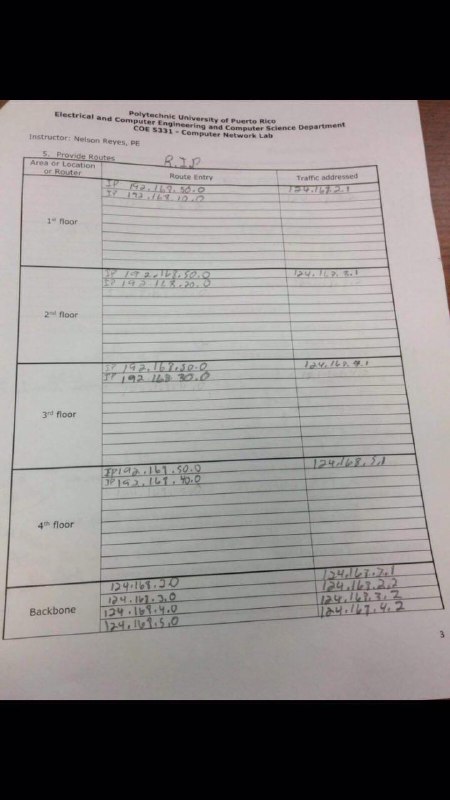 Polytechnic University of Puerto Rico
Electrical and Computer Engineering and Computer Science Department
COE 5331 - Computer Network Lab
Instructor: Nelson Reyes, PE
5. Provide Routes R.I.P
Area or Location or Router Route Entry Traffic addressed
1st floor
IP 192.168.50.0 124.168.2.1
IP 192.168.10.0
2nd floor
IP 192.168.50.0 124.168.3.1
IP 192.168.20.0
3rd floor
IP 192.168.50.0 124.168.4.1
IP 192.168.30.0
4th floor
IP 192.168.50.0 124.168.5.1
IP 192.168.40.0
Backbone
124.168.2.0
124.168.3.0 124.168.2.2
124.168.4.0 124.168.3.2
124.168.5.0 124.168.4.2
3